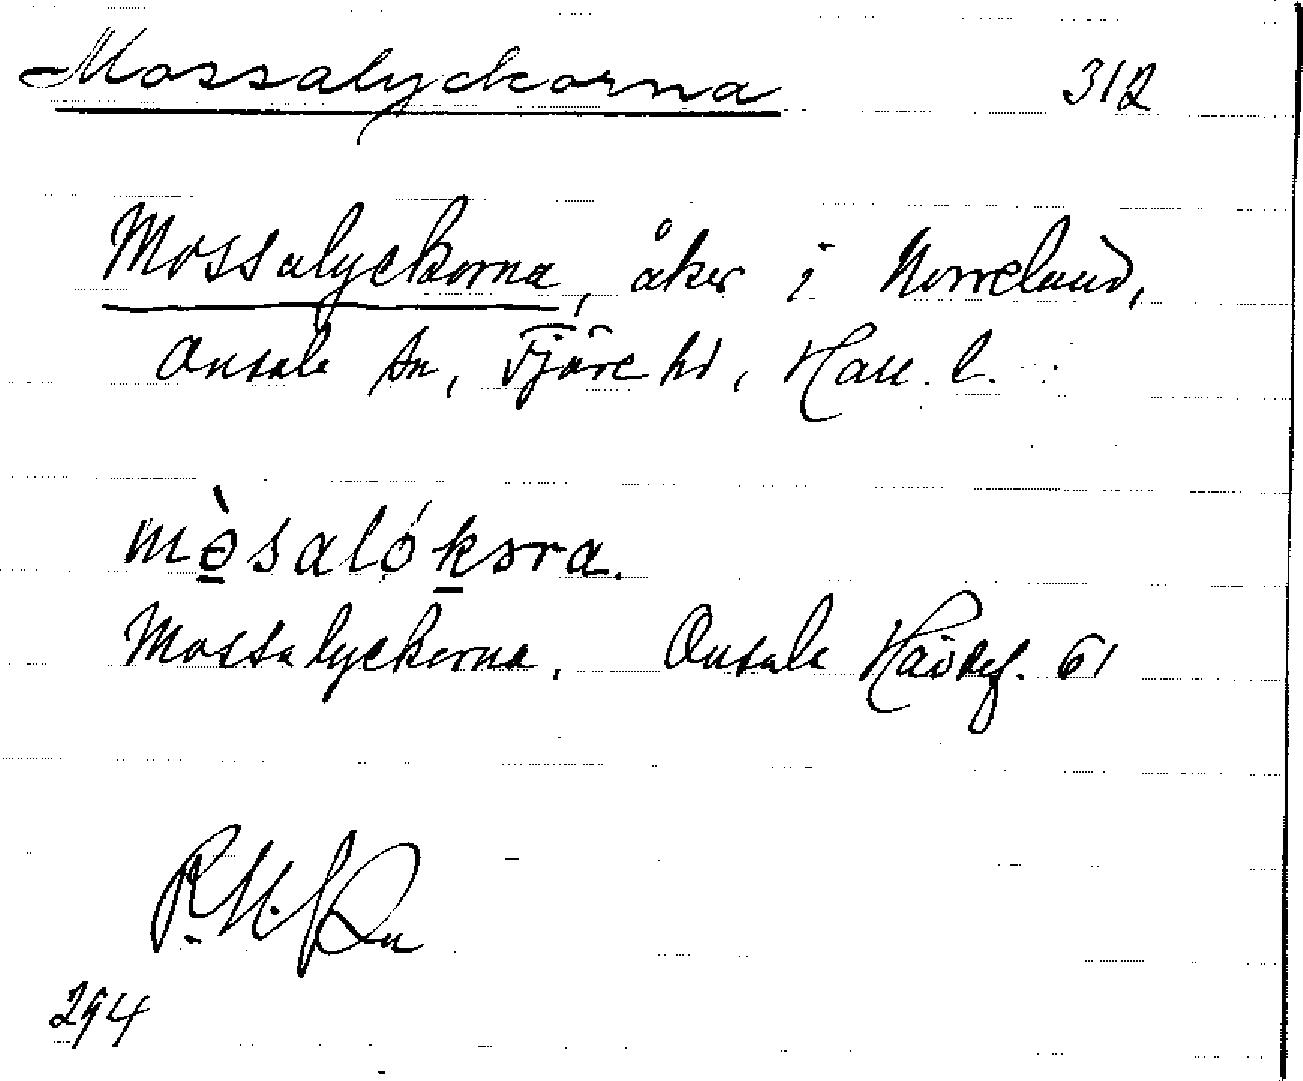 Mossalyckorna 312
Mossalyckorna, åker i Norreland,
Onsala sn, Fjäre hd, Hall. l.
mòsalókora.
Mossalyckorna, Onsala 61
294